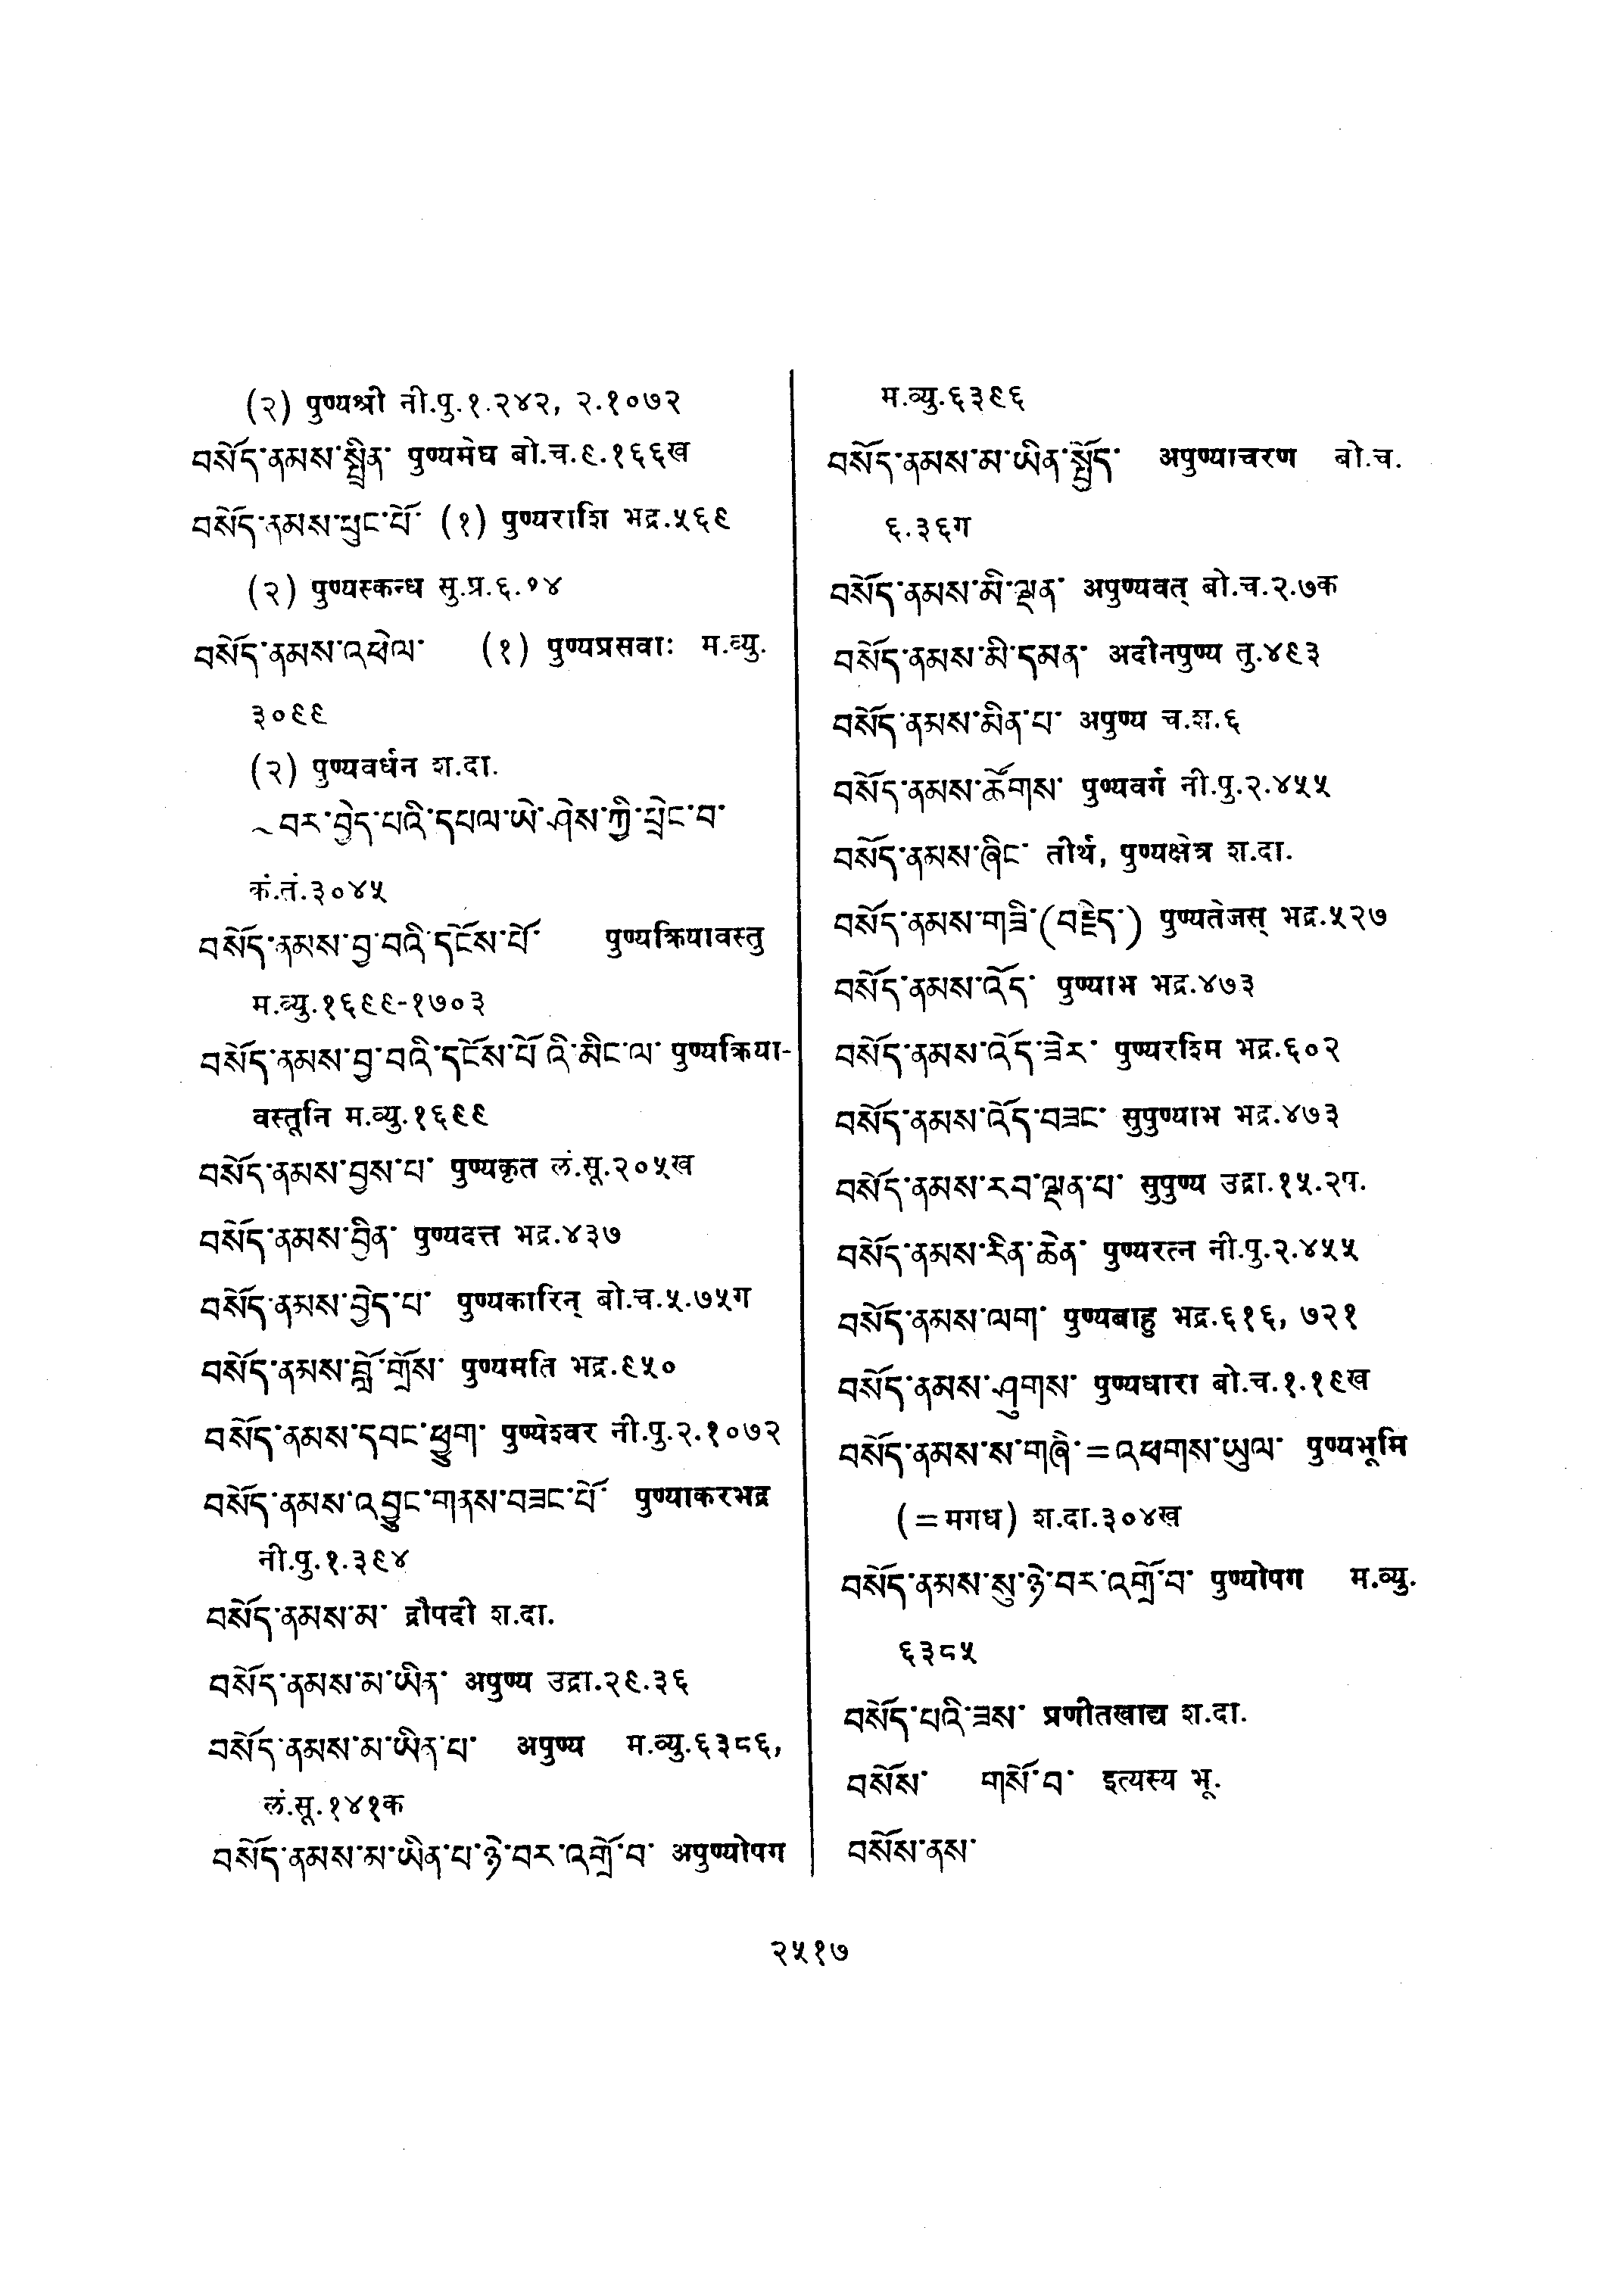 (२) पुण्यश्री नी.पु.१.२४२, २.१०७२
བསོད་ནམས་སྤྲིན་ पुण्यमेघ बो.च.९.१६६ख
བསོད་ནམས་ཕུང་པོ་ (१) पुण्यराशि भद्र.५६९
(२) पुण्यस्कन्ध सु.प्र.६.१४
བསོད་ནམས་འཕེལ་ (१) पुण्यप्रसवाः म.व्यु.
३०९९
(२) पुण्यवर्धन श.दा.
~བར་བྱེད་པའི་དཔལ་ཡེ་ཤེས་ཀྱི་ཕྲེང་བ་
कं.तं.३०४५
བསོད་ནམས་བྱ་བའི་དངོས་པོ་ पुण्यक्रियावस्तु
म.व्यु.१६९९-१७०३
བསོད་ནམས་བྱ་བའི་དངོས་པོ་འི་མིང་ལ་ पुण्यक्रिया-
वस्तूनि म.व्यु.१६९९
བསོད་ནམས་བྱས་པ་ पुण्यकृत लं.सू.२०५ख
བསོད་ནམས་བྱིན་ पुण्यदत्त भद्र.४३७
བསོད་ནམས་བྱེད་པ་ पुण्यकारिन् बो.च.५.७५ग
བསོད་ནམས་བློ་གྲོས་ पुण्यमति भद्र.९५०
བསོད་ནམས་དབང་ཕྱུག་ पुण्येश्वर नी.पु.२.१०७२
བསོད་ནམས་འབྱུང་གནས་བཟང་པོ་ पुण्याकरभद्र
नी.पु.१.३९४
བསོད་ནམས་མ་ द्रौपदी श.दा.
བསོད་ནམས་མ་ཡིན་ अपुण्य उद्रा.२९.३६
བསོད་ནམས་མ་ཡིན་པ་ अपुण्य म.व्यु.६३८६,
लं.सू.१४१क
བསོད་ནམས་མ་ཡིན་པ་ཉེ་བར་འགྲོ་བ་ अपुण्योपग
म.व्यु.६३९६
བསོད་ནམས་མ་ཡིན་སྤྱོད་ अपुण्याचरण बो.च.
६.३६ग
བསོད་ནམས་མི་ལྡན་ अपुण्यवत् बो.च.२.७क
བསོད་ནམས་མི་དམན་ अदीनपुण्य तु.४९३
བསོད་ནམས་མིན་པ་ अपुण्य च.श.६
བསོད་ནམས་ཚོགས་ पुण्यवर्ग नी.पु.२.४५५
བསོད་ནམས་ཞིང་ तीर्थ, पुण्यक्षेत्र श.दा.
བསོད་ནམས་གཟི་(བརྗེད་) पुण्यतेजस् भद्र.५२७
བསོད་ནམས་འོད་ पुण्याभ भद्र.४७३
བསོད་ནམས་འོད་ཟེར་ पुण्यरश्मि भद्र.६०२
བསོད་ནམས་འོད་བཟང་ सुपुण्याभ भद्र.४७३
བསོད་ནམས་རབ་ལྡན་པ་ सुपुण्य उद्रा.१५.२१.
བསོད་ནམས་རིན་ཆེན་ पुण्यरत्न नी.पु.२.४५५
བསོད་ནམས་ལག་ पुण्यबाहु भद्र.६१६, ७२१
བསོད་ནམས་ཤུགས་ पुण्यधारा बो.च.१.१९ख
བསོད་ནམས་ས་གཞི་=འཕགས་ཡུལ་ पुण्यभूमि
(=मगध) श.दा.३०४ख
བསོད་ནམས་སུ་ཉེ་བར་འགྲོ་བ་ पुण्योपग म.व्यु.
६३८५
བསོད་པའི་ཟས་ प्रणीतखाद्य श.दा.
བསོས་ གསོ་བ་ इत्यस्य भू.
བསོས་ནས་
२५१७